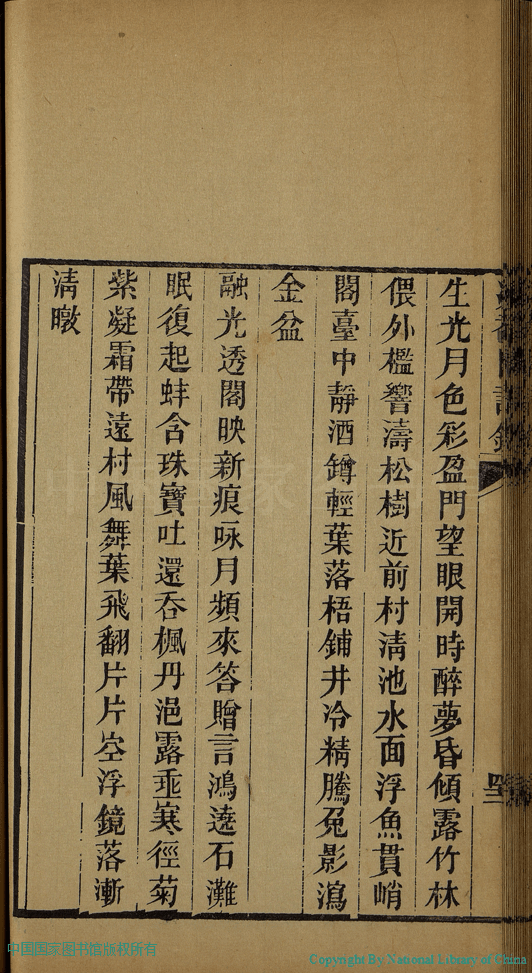 生光月色彩盈門望眼開時醉夢昏傾露竹林
偎外檻響濤松樹近前村清池水面浮魚貫峭
閣臺中靜酒罇輕葉落梧鋪井冷精騰兔影瀉
金盆
融光透閣映新痕咏月頻來答贈言鴻遶石灘
眠復起蚌含珠寶吐還吞楓丹浥露垂寒徑菊
紫凝霜帶遠村風舞葉飛翻片片空浮鏡落漸
清暾
中国国家图书馆版权所有
Copyright By National Library of China